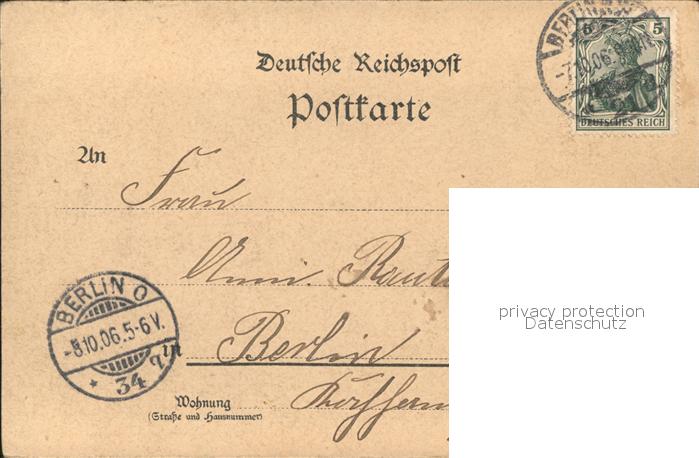 Deutsche Reichspost
Postkarte
5 5
DEUTSCHES REICH
BERLIN
-7.10.06
An
Frau
Berlin
in
Wohnung
(Straße und Hausnummer)
BERLIN O
-8.10.06.5-6V.
* 34
privacy protection
Datenschutz